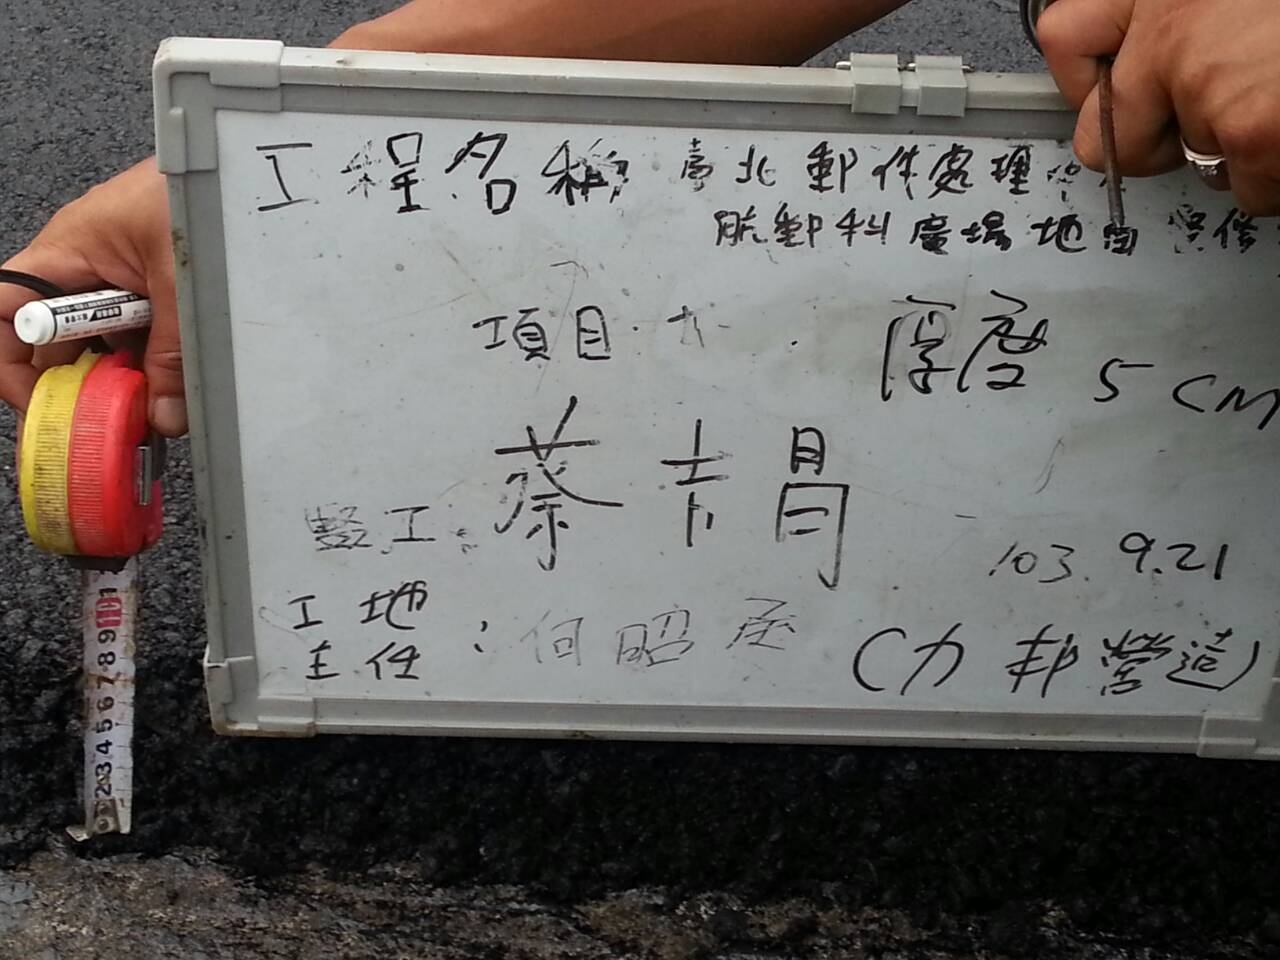 工程名稱 臺北郵件處理中
航郵科廣場地面 修
項目:
厚度 5 CM
監工: 蔡
103. 9.21
工地
主任 : 何昭
(力邦營造)
1 2 3 4 5 6 7 8 9 10 1